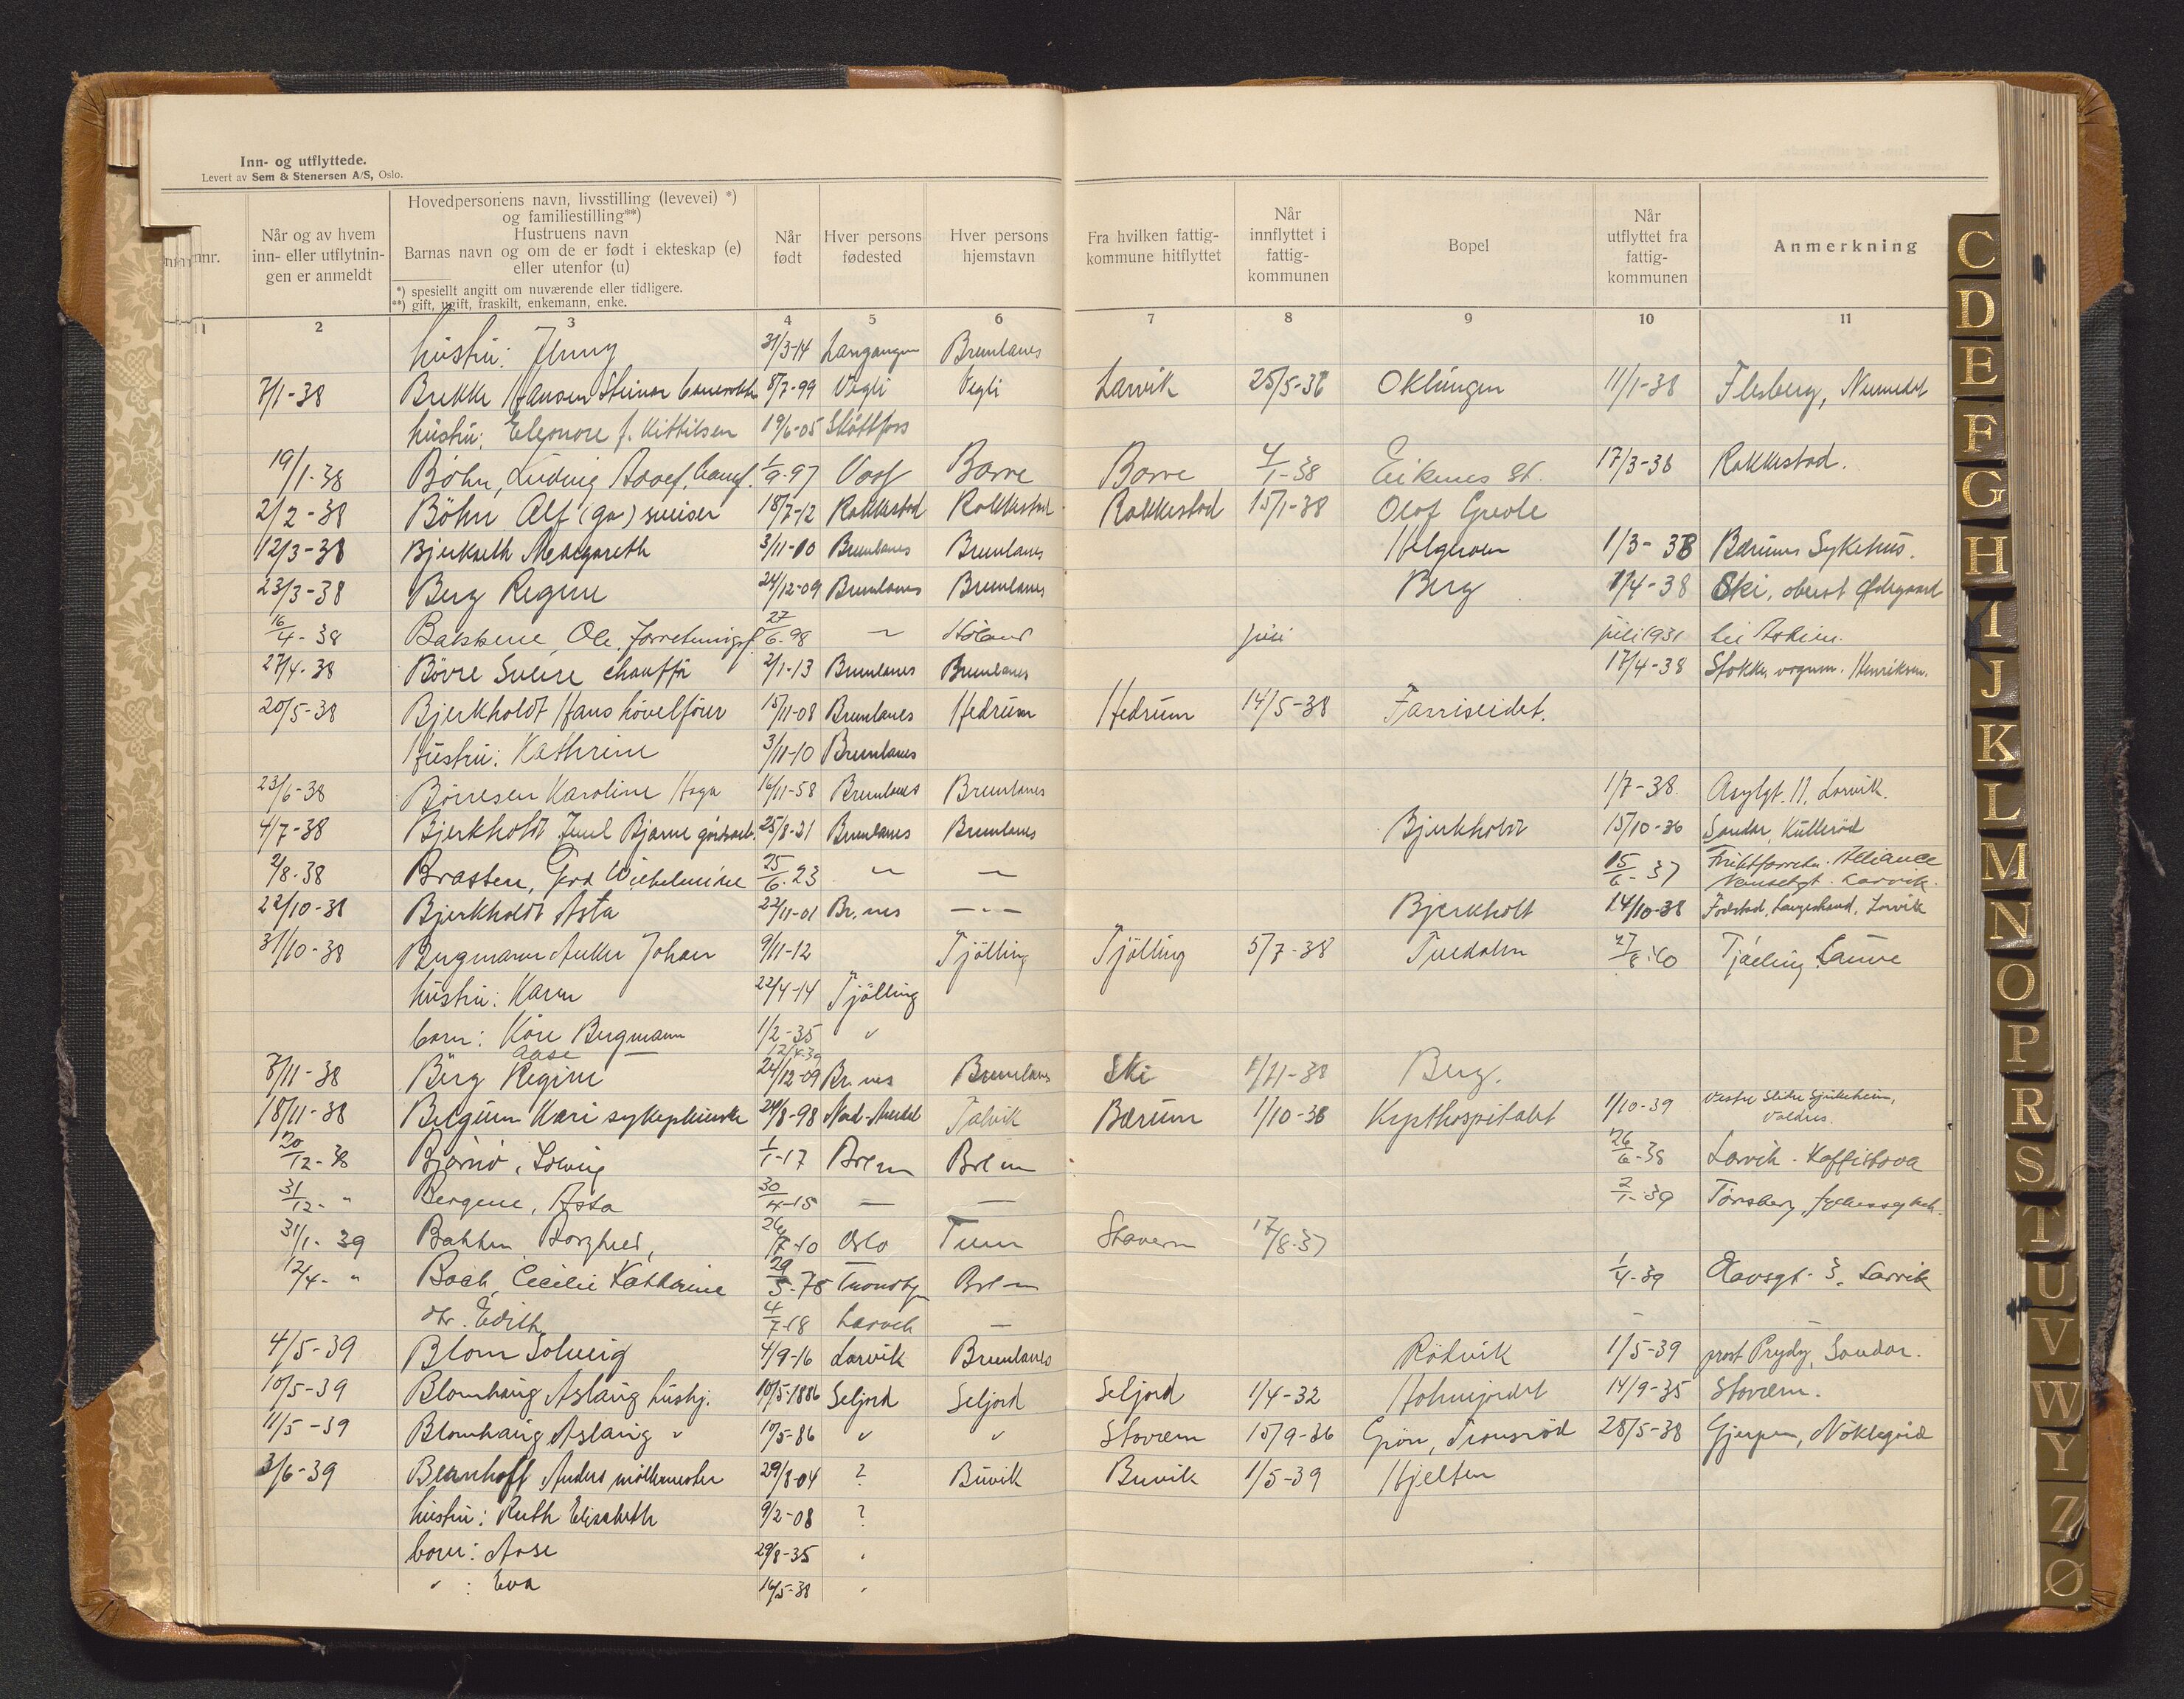 Inn- og utflyttede.
Levert av Sem & Stenersen A/S, Oslo.
nnr.
Når og av hvem inn- eller utflytnin- gen er anmeldt
Hovedpersonens navn, livsstilling (levevei) *) og familiestilling**) Hustruens navn Barnas navn og om de er født i ekteskap (e) eller utenfor (u)
*) spesiellt angitt om nuværende eller tidligere.
**) gift, ugift, fraskilt, enkemann, enke.
Når født
Hver persons fødested
Hver persons hjemstavn
Fra hvilken fattig- kommune hitflyttet
Når innflyttet i fattig- kommunen
Bopel
Når utflyttet fra fattig- kommunen
Anmerkning
1 2 3 4 5 6 7 8 9 10 11
hustru: Jenny 31/3-14 Langangen Brunlanes
7/1-38 Brekke Hansen Steinar 8/7-99 Vegli Vegli Larvik 25/5-36 Oklungen 11/1-38 Flesberg, Numedal
hustru: Eleonore f. Kittilsen 19/6-05 Skottfoss
19/1-38 Bøhn, Ludvig 1/9-97 Borre Borre 4/1-38 Eikenes St. 17/3-38 Rakkestad.
2/2-38 Böhn Alf (ga) sveiser 18/7-12 Rakkestad Rakkestad Rakkestad 15/1-38 Olaf Grevle
12/3-38 Bjerkseth Margareth 3/11-10 Brunlanes Brunlanes Helgeroen 1/3-38 Bærums Sykehus.
23/3-38 Berg Regine 24/12-09 Brunlanes Brunlanes Berg 1/4-38 Ski, oberst Ødegaard
16/4-38 Bakskene, Ole, forretningsf. 27/6-98 — Höland juli 1931
27/4-38 Bövre Sverre chauffør 2/1-13 Brunlanes Brunlanes 17/4-38 Stokke, vognm. Henriksen.
20/5-38 Bjerkholdt Hans hövelförer 15/11-08 Brunlanes Hedrum Hedrum 14/5-38 Farriseidet.
Hustru: Kathrine 3/11-10 Brunlanes
23/6-38 Börresen Karoline Haga 16/11-58 Brunlanes Brunlanes 1/7-38 Asylgt. 11, Larvik.
4/7-38 Bjerkholdt Juul Bjarne gårdsarb. 25/8-21 Brunlanes Brunlanes Bjerkholdt 15/10-36 Sandar, Kulleröd
2/8-38 Brasten, Gerd Wilhelmine 25/6-23 — — 15/6-37 Fruktforretn. Alliance
Nansetgt. Larvik.
22/10-38 Bjerkholdt Asta 22/11-01 Br.nes —"— Bjerkholt 14/10-38 Fodstad, Langestrand, Larvik
31/10-38 Bergmann Anker Johan 9/11-12 Tjölling Tjölling 5/7-38 Tvedalen 27/8-40 Tjölling Lauve
hustru: Karen 22/4-14 Tjölling
barn: Kåre Bergmann 1/2-35 "
Aase 12/4-39
8/11-38 Berg Regine 24/12-09 Br.nes Brunlanes Ski 1/11-38 Berg.
18/11-38 Belgum Kari sykepleierske 24/8-98 Nord-Aurdal Talvik Bærum 1/10-38 Kysthospitalet 1/10-39 Vestre Slidre Sjukeheim,
Valdres.
20/12-38 Bjørnø, Solveig 1/1-17 Brl m Brl m 26/6-38 Larvik - Kaffistova
31/12- " Bergene, Asta 30/4-15 — — 2/1-39 Tønsberg, fylkessykeh.
31/1-39 Bakken Borghild, 26/7-10 Oslo Tinn Stavern 17/8-37
12/4- " Bach, Cecilie Kathrine 29/5-78 Brl m 1/4-39 Olavsgt. 3, Larvik
dtr. Edith 4/7-18 Larvik —
4/5-39 Blom Solveig 4/9-16 Larvik Brunlanes Rödvik 1/5-39 prost Prydz, Sandar.
10/5-39 Blomhaug Aslaug hushj. 10/5-1886 Seljord Seljord Seljord 1/4-32 Holmejordet 14/9-35 Stavern.
11/5-39 Blomhaug Aslaug " 10/5-86 " " Stavern 15/9-36 Grön, Tronsröd 28/5-38 Gjerpen, Nöklegård
3/6-39 Blanhoff Anders möllemester 29/8-04 ? Buvik Buvik 1/5-39 Hjelten
hustru: Ruth Elisabeth 9/2-08 ?
barn: Aase 29/8-35 "
" : Eva 16/5-38 "
C
D
E
F
G
H
I
J
K
L
M
N
O
P
R
S
T
U
V
W
Y
Z
Ø